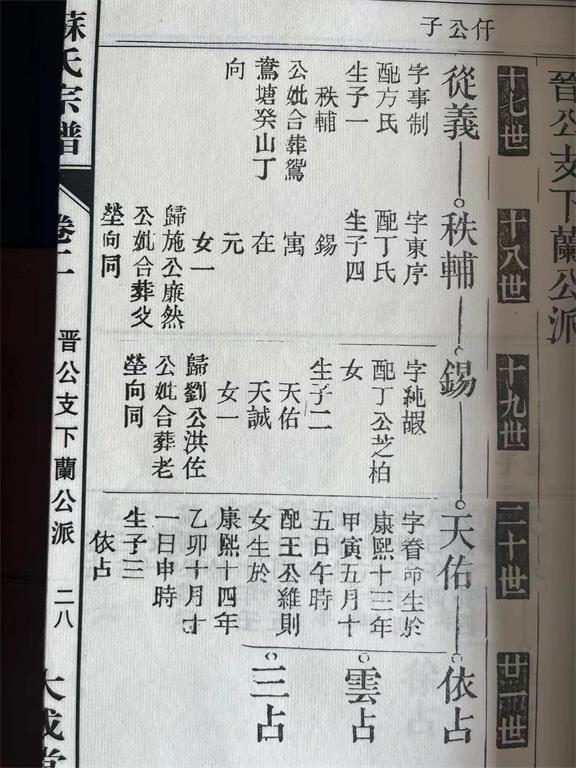 晉公支下蘭公派
仟公子
十七世
十八世
十九世
二十世
廿一世
從義
字事制
配方氏
生子一
秩輔
公妣合葬鴛
鴦塘癸山丁
向
秩輔
字東序
配丁氏
生子四
錫
寓
在
元
女一
歸施公廉然
公妣合葬父
塋向同
錫
字純嘏
配丁公芝柏
女
生子二
天佑
天誠
女一
歸劉公洪佐
公妣合葬老
塋向同
天佑
字眷命生於
康熙十三年
甲寅五月十
五日午時
配王公維則
女生於
康熙十四年
乙卯十月廿
一日申時
生子三
依占
依占
雲占
三占
蘇氏宗譜
卷二
晋公支下蘭公派
二八
大成堂